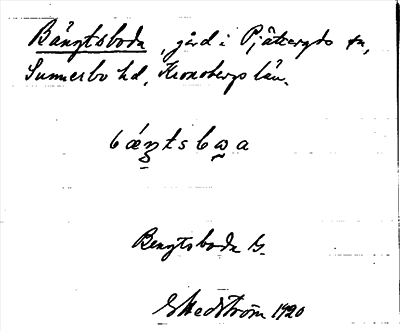 Bängtsboda, gård i Pjätteryds sn,
Sunnerbo hd, Kronobergs län.
bǽŋtsbωa
Bengtsboda
EHedström 1920